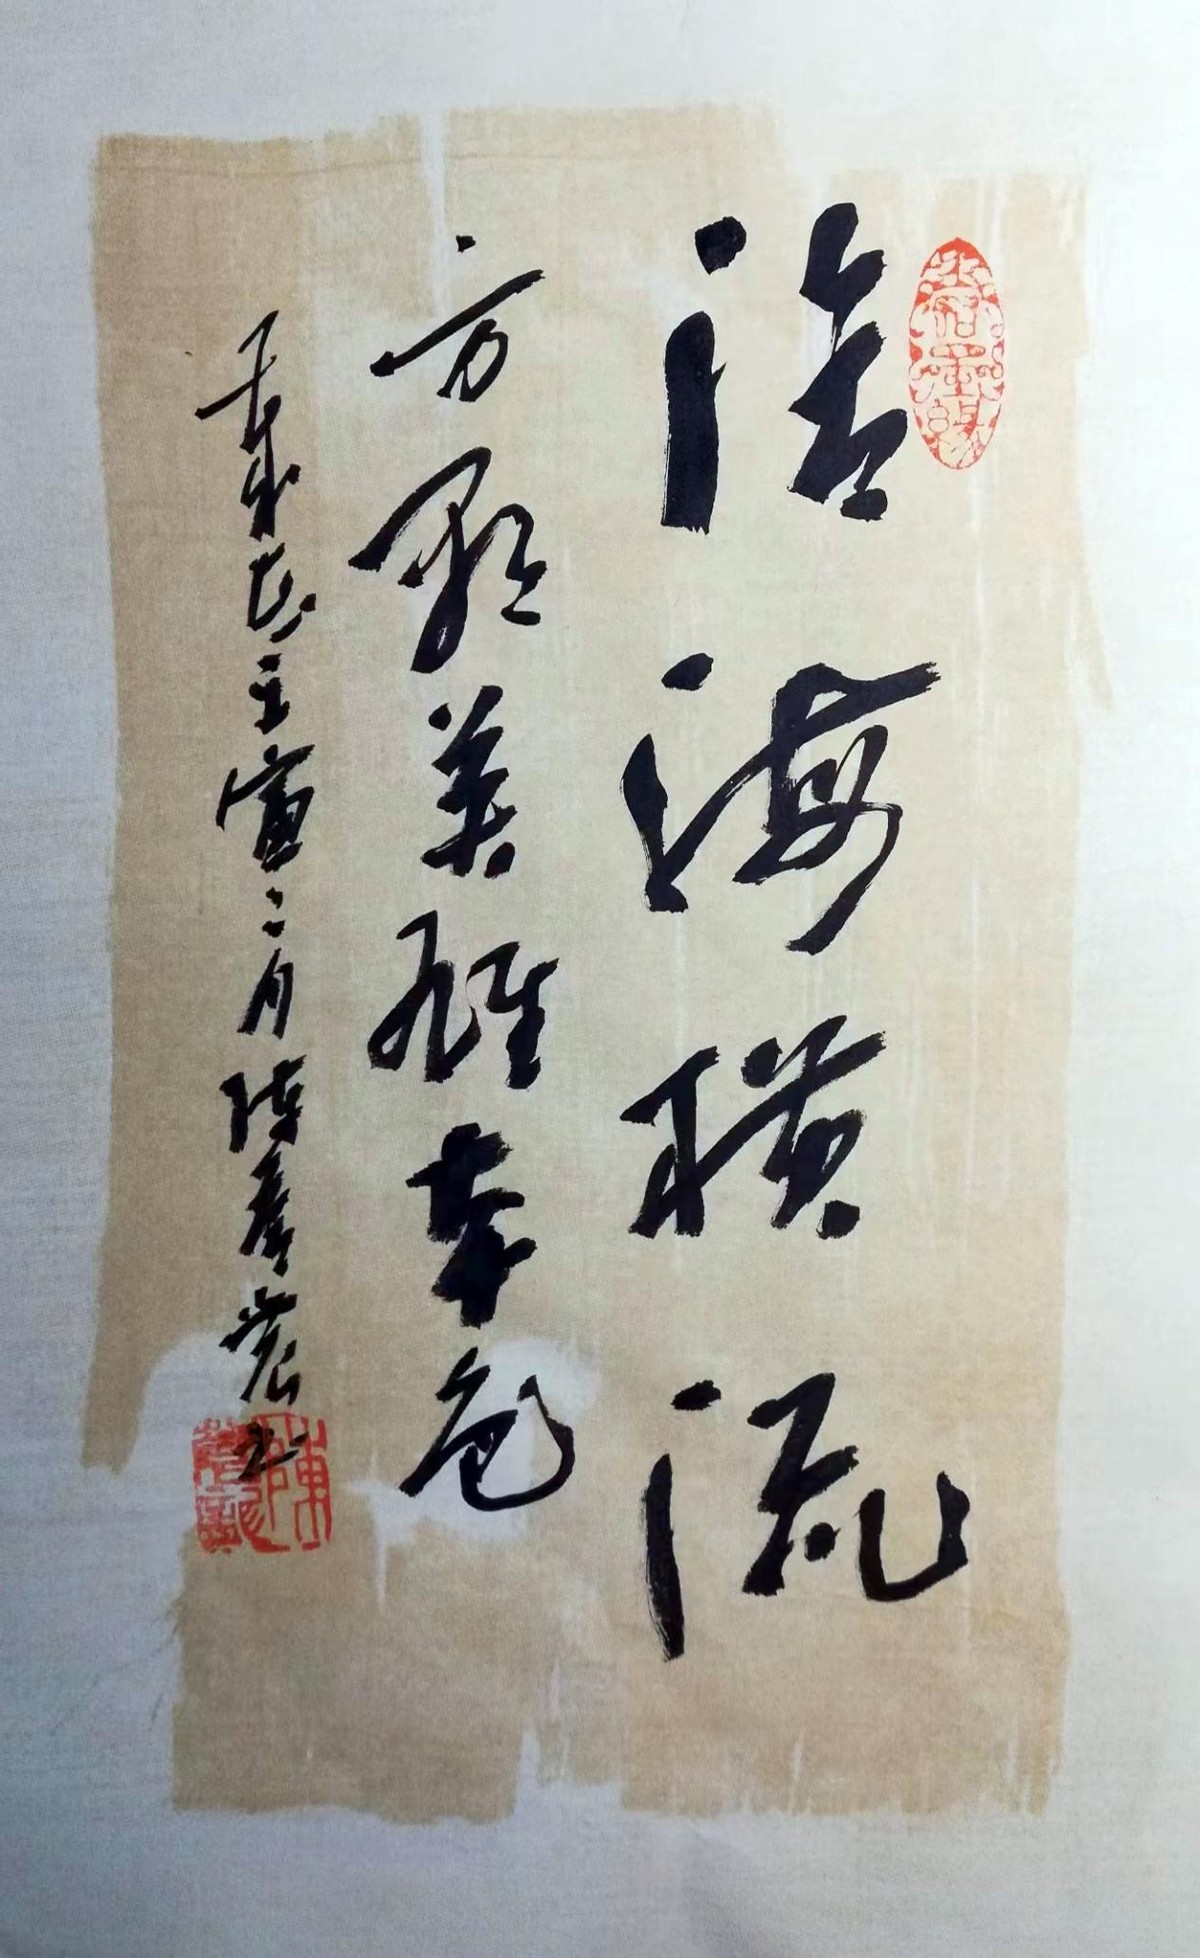 沧海横流
方显英雄本色
壬寅二月陈彦